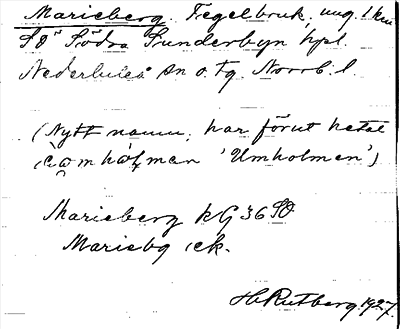 Marieberg. Tegelbruk, ung. 1 km
SO Södra Sunderbyn hpl.
Nederluleå sn o. tg. Norrb. l.
(Nytt namn; har förut hetat
'Umholmen')
Marieberg kG 36 SO
Mariebg ek.
H. Rutberg 1927.